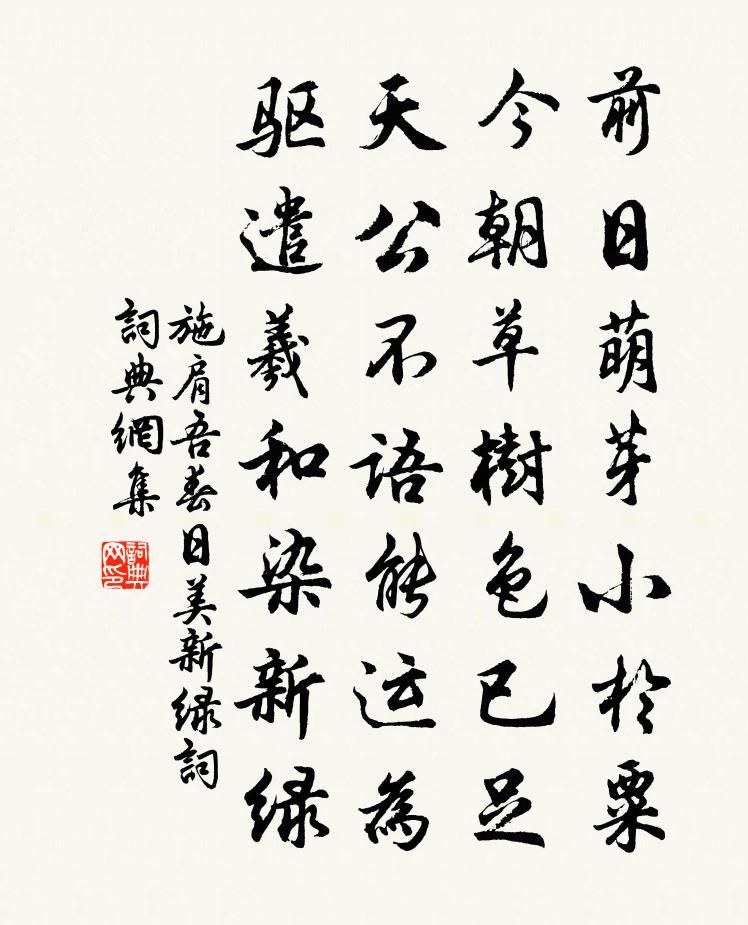 前日萌芽小於粟
今朝草樹色已足
天公不语能运為
驱遣羲和染新绿
施肩吾春日美新绿詞
詞典網集
詞典
网印